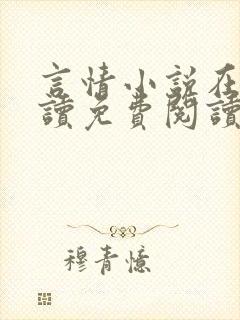 言情小說在
讀免費閱讀
穆青憶